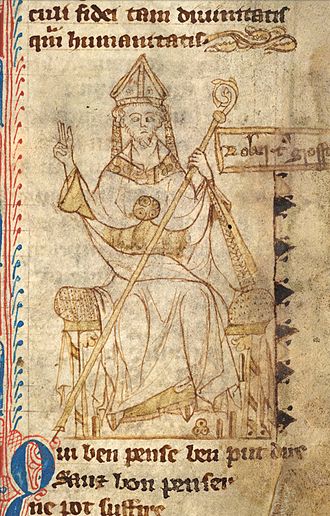 culi fidei tam diuinitatis
qui humanitatis
Qui ben pense ben put dire
Sanz bon penser
ne pot suffire